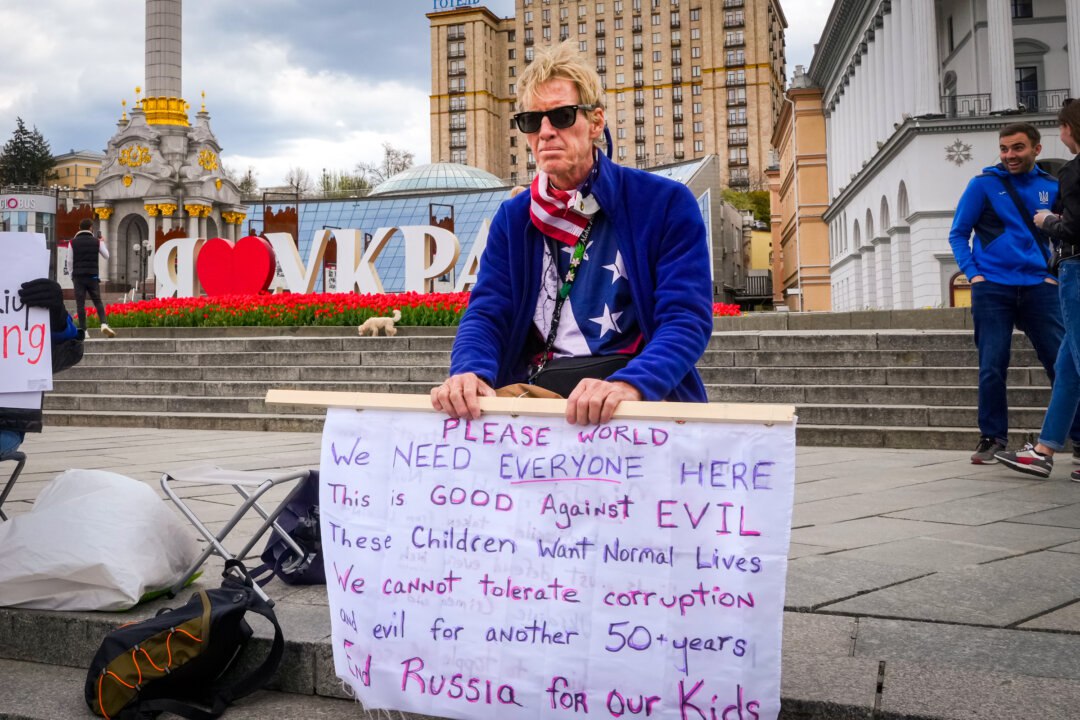 ГОТЕЛЬ
GLOBUS
Я УКРА
ng
PLEASE WORLD
We NEED EVERYONE HERE
This is GOOD Against EVIL
These Children Want Normal Lives
We cannot tolerate corruption
and evil for another 50+years
End Russia for our Kids